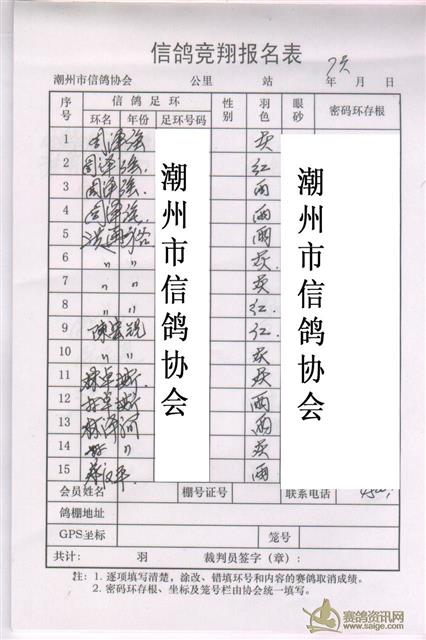 信鸽竞翔报名表
潮州市信鸽协会 公里 站 年 月 日
序号 信鸽足环 性别 羽色 眼砂 密码环存根
环名 年份 足环号码
1 周泽强 灰
2 周泽强 红
3 周泽强 雨
4 周泽强 雨
5 雨
6 〃 〃 灰
7 〃 〃 灰
8 〃 〃 红
9 红
10 〃 〃 灰
11 灰
12 雨
13 林泽河 雨
14 〃 灰
15 蔡汉平 雨
潮州市信鸽协会
潮州市信鸽协会
会员姓名 棚号证号 联系电话
鸽棚地址
GPS坐标 笼号
共计: 羽 裁判员签字(章):
注:1. 逐项填写清楚,涂改、错填环号和内容的赛鸽取消成绩。
2. 密码环存根、坐标及笼号栏由协会统一填写。
赛鸽资讯网
www.saige.com